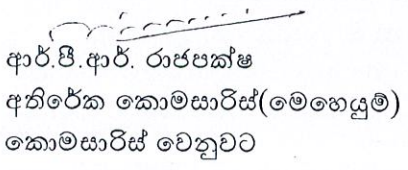 ආර්.පී.ආර්. රාජපක්ෂ
අතිරේක කොමසාරිස්(මෙහෙයුම්)
කොමසාරිස් වෙනුවට